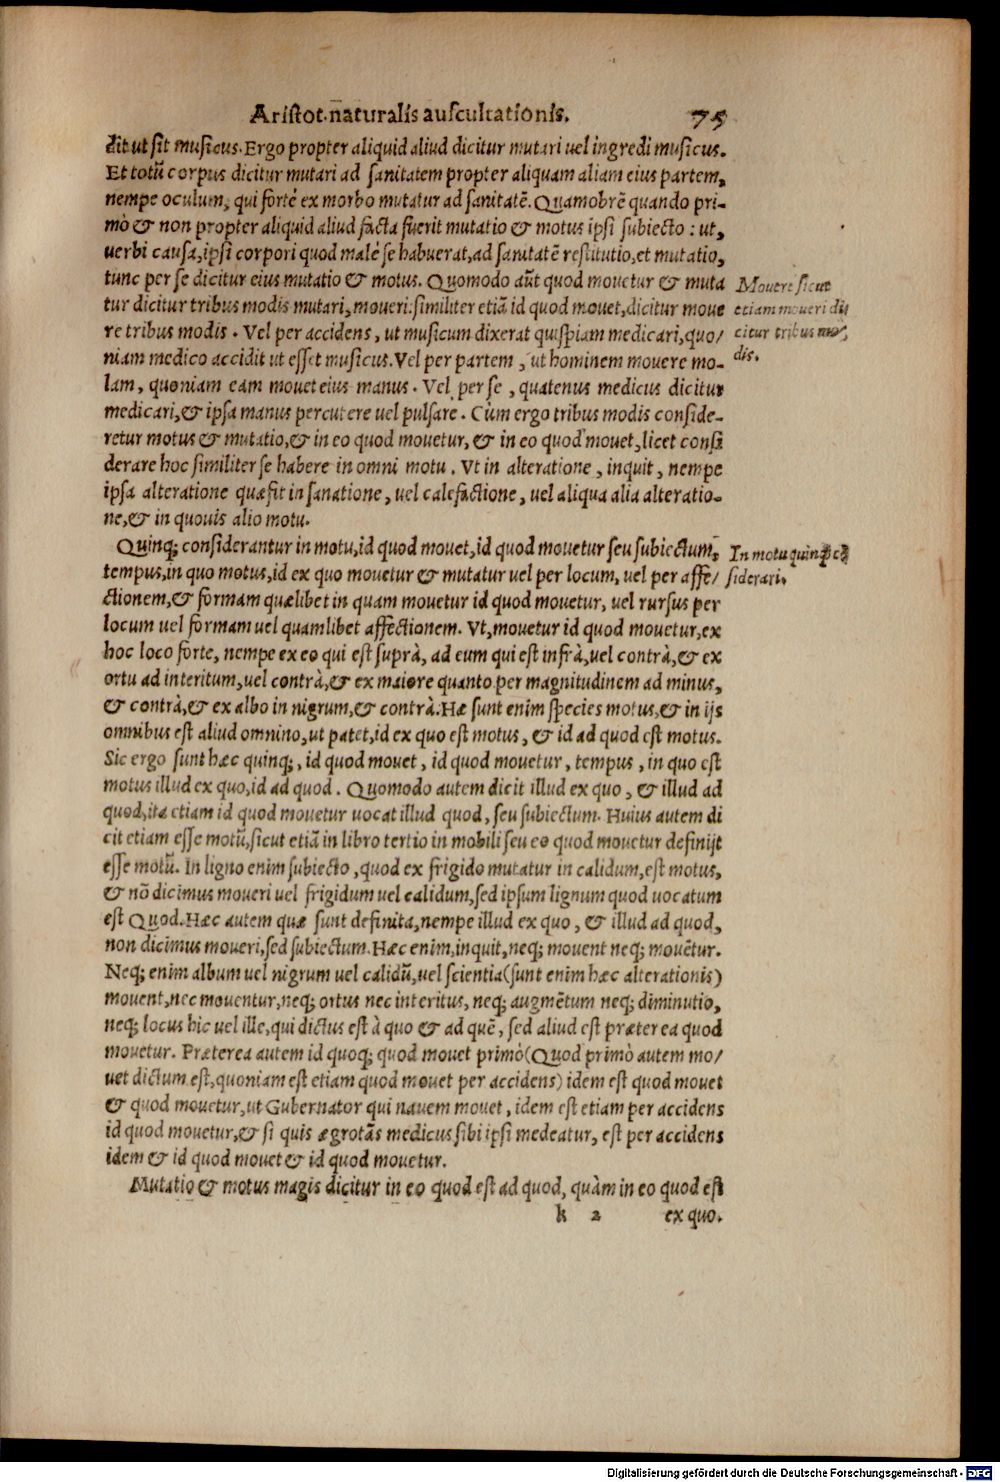 Aristot. naturalis auscultationis. 75
dit ut sit musicus. Ergo propter aliquid aliud dicitur mutari uel ingredi musicus.
Et totũ corpus dicitur mutari ad sanitatem propter aliquam aliam eius partem,
nempe oculum, qui fortè ex morbo mutatur ad sanitatẽ. Quamobrẽ quando pri-
mò & non propter aliquid aliud facta fuerit mutatio & motus ipsi subiecto: ut,
uerbi causa, ipsi corpori quod malè se habuerat, ad sanitatẽ restitutio, et mutatio,
tunc per se dicitur eius mutatio & motus. Quomodo aũt quod mouetur & muta
tur dicitur tribus modis mutari, moueri: similiter etiã id quod mouet, dicitur moue
re tribus modis. Vel per accidens, ut musicum dixerat quispiam medicari, quo/
niam medico accidit ut esset musicus. Vel per partem, ut hominem mouere mo-
lam, quoniam eam mouet eius manus. Vel per se, quatenus medicus dicitur
medicari, & ipsa manus percutere uel pulsare. Cùm ergo tribus modis conside-
retur motus & mutatio, & in eo quod mouetur, & in eo quod mouet, licet consi
derare hoc similiter se habere in omni motu. Vt in alteratione, inquit, nempe
ipsa alteratione quæ fit in sanatione, uel calefactione, uel aliqua alia alteratio-
ne, & in quouis alio motu.
Mouere sicut
etiam moueri di
citur tribus mo,
dis.
Quinq; considerantur in motu, id quod mouet, id quod mouetur seu subiectum,
tempus, in quo motus, id ex quo mouetur & mutatur uel per locum, uel per affe/
ctionem, & formam quælibet in quam mouetur id quod mouetur, uel rursus per
locum uel formam uel quamlibet affectionem. Vt, mouetur id quod mouetur, ex
hoc loco forte, nempe ex eo qui est suprà, ad eum qui est infrà, uel contrà, & ex
ortu ad interitum, uel contrà, & ex maiore quanto per magnitudinem ad minus,
& contrà, & ex albo in nigrum, & contrà. Hæ sunt enim species motus, & in ijs
omnibus est aliud omnino, ut patet, id ex quo est motus, & id ad quod est motus.
Sic ergo sunt hæc quinq;, id quod mouet, id quod mouetur, tempus, in quo est
motus illud ex quo, id ad quod. Quomodo autem dicit illud ex quo, & illud ad
quod, ita etiam id quod mouetur uocat illud quod, seu subiectum. Huius autem di
cit etiam esse motũ, sicut etiã in libro tertio in mobili seu eo quod mouetur definijt
esse motũ. In ligno enim subiecto, quod ex frigido mutatur in calidum, est motus,
& nõ dicimus moueri uel frigidum uel calidum, sed ipsum lignum quod uocatum
est Quod. Hæc autem quæ sunt definita, nempe illud ex quo, & illud ad quod,
non dicimus moueri, sed subiectum. Hæc enim, inquit, neq; mouent neq; mouẽtur.
Neq; enim album uel nigrum uel calidũ, uel scientia (sunt enim hæc alterationis)
mouent, nec mouentur, neq; ortus nec interitus, neq; augmẽtum neq; diminutio,
neq; locus hic uel ille, qui dictus est à quo & ad quẽ, sed aliud est præter ea quod
mouetur. Præterea autem id quoq; quod mouet primò (Quod primò autem mo/
uet dictum est, quoniam est etiam quod mouet per accidens) idem est quod mouet
& quod mouetur, ut Gubernator qui nauem mouet, idem est etiam per accidens
id quod mouetur, & si quis ægrotãs medicus sibi ipsi medeatur, est per accidens
idem & id quod mouet & id quod mouetur.
In motu quinq;
siderari.
Mutatio & motus magis dicitur in eo quod est ad quod, quàm in eo quod est
k 2 ex quo.
Digitalisierung gefördert durch die Deutsche Forschungsgemeinschaft - DFG